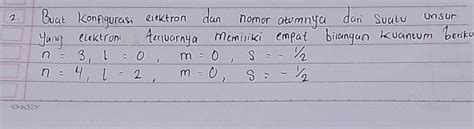 2. Buat Konfigurasi elektron dan nomor atomnya dari suatu unsur
yang elektron terluarnya memiliki empat bilangan kuantum beriku
n = 3, l = 0, m = 0, s = - 1/2
n = 4, l = 2, m = 0, s = - 1/2